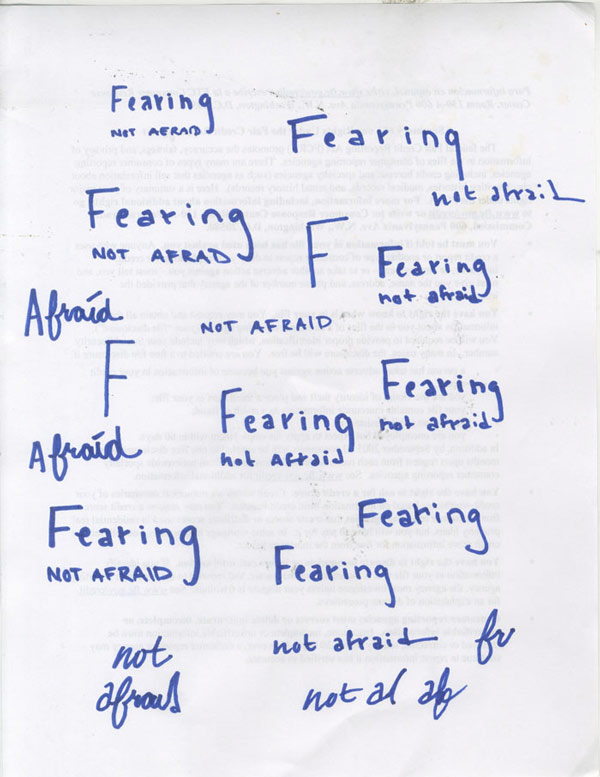 Fearing
NOT AFRAID
Fearing
not afraid
Fearing
NOT AFRAD
F
Fearing
not afraid
Afraid
NOT AFRAID
F
Fearing
not afraid
Fearing
not afraid
Afraid
Fearing
NOT AFRAID
Fearing
Fearing
not afraid
fr
not
afraid
not al